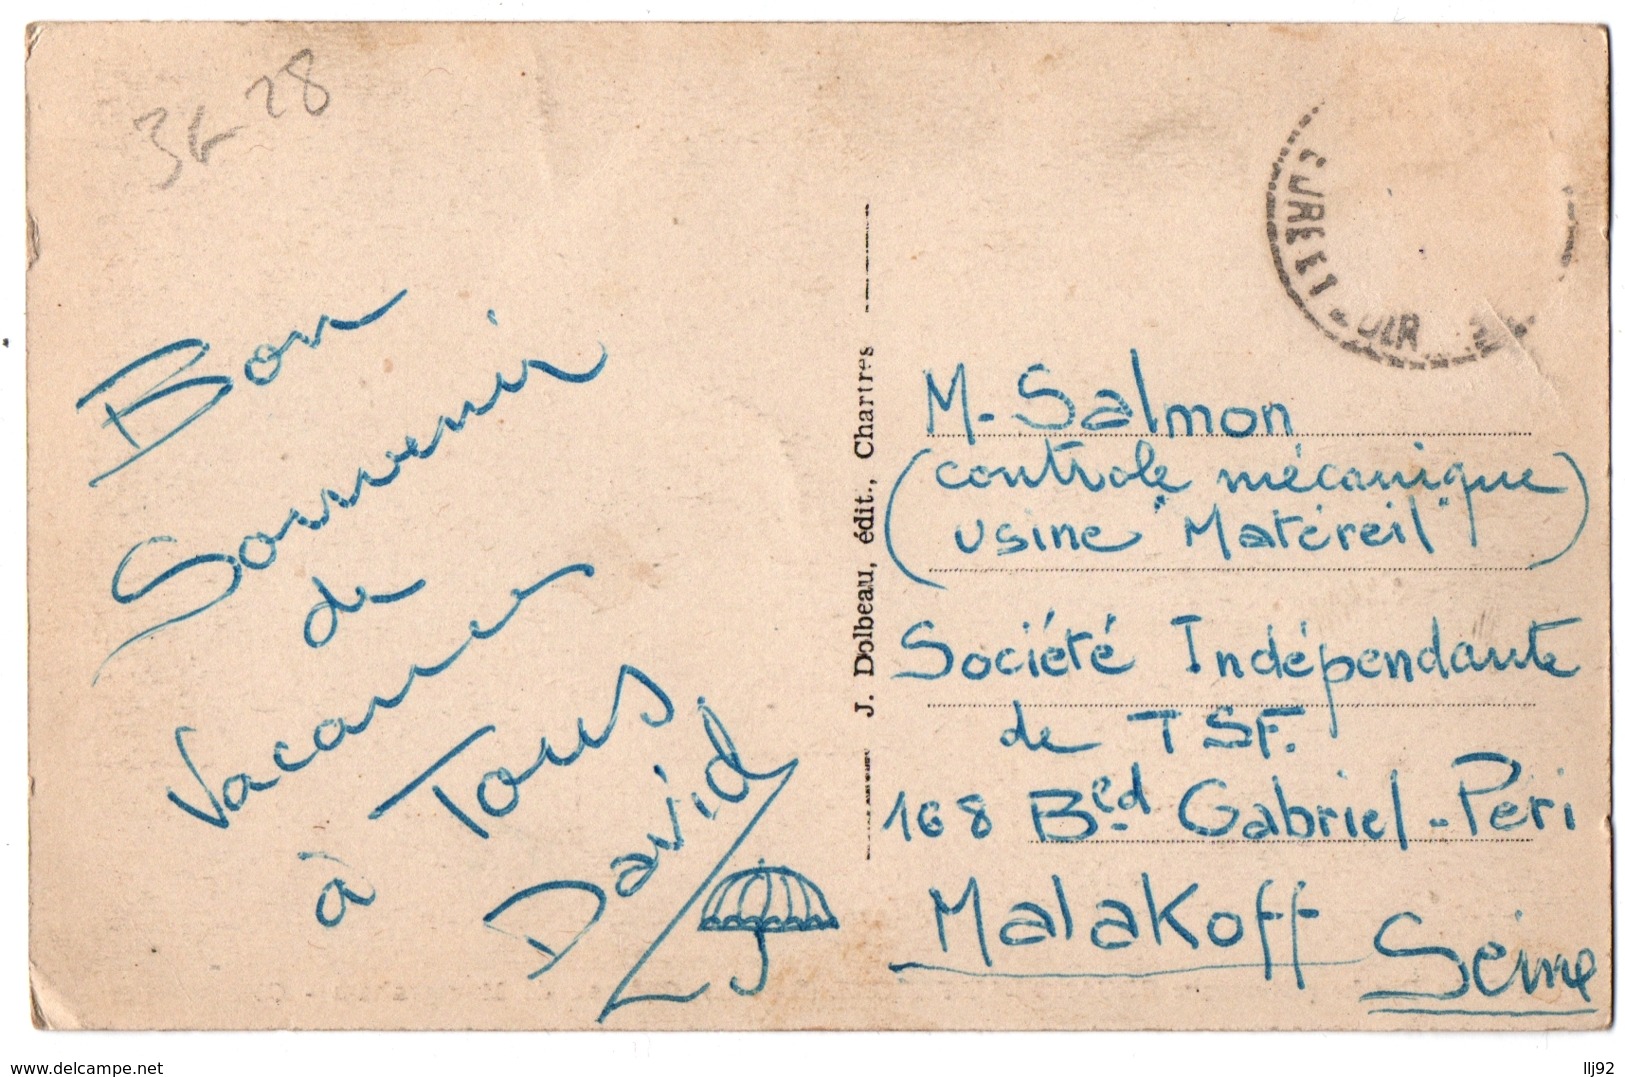 28
Bon
Souvenir
de
Vacances
à Tous
David
J. Dolbeau, édit., Chartres
M. Salmon
(contrôle mécanique
usine "Matéreil")
Société Indépendante
de TSF.
168 Bed Gabriel-Péri
Malakoff
Seine
delcampe.net
llj92